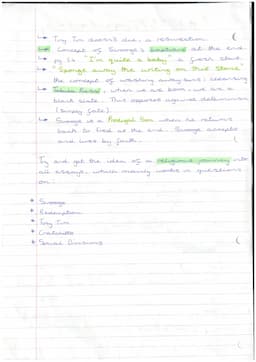 ↳ Tiny Tim doesn't die, a resurrection.
↳ Concept of Scrooge's emotions at the end.
↳ pg 18 "I'm quite a baby" a fresh start.
↳ "Sponge away the writing on this stone",
the concept of washing away sins; cleansing
↳ Tabula Rasa, when we are born, we are a
blank slate. This opposes against determinism
(binding fate).
↳ Scrooge is a Prodigal Son when he returns
back to Fred at the end. Scrooge accepts
and lives by faith.
Try and get the idea of a religious journey into
all essays, which mainly works in questions
on:
* Scrooge
* Redemption
* Tiny Tim
* Cratchits
* Social Divisions